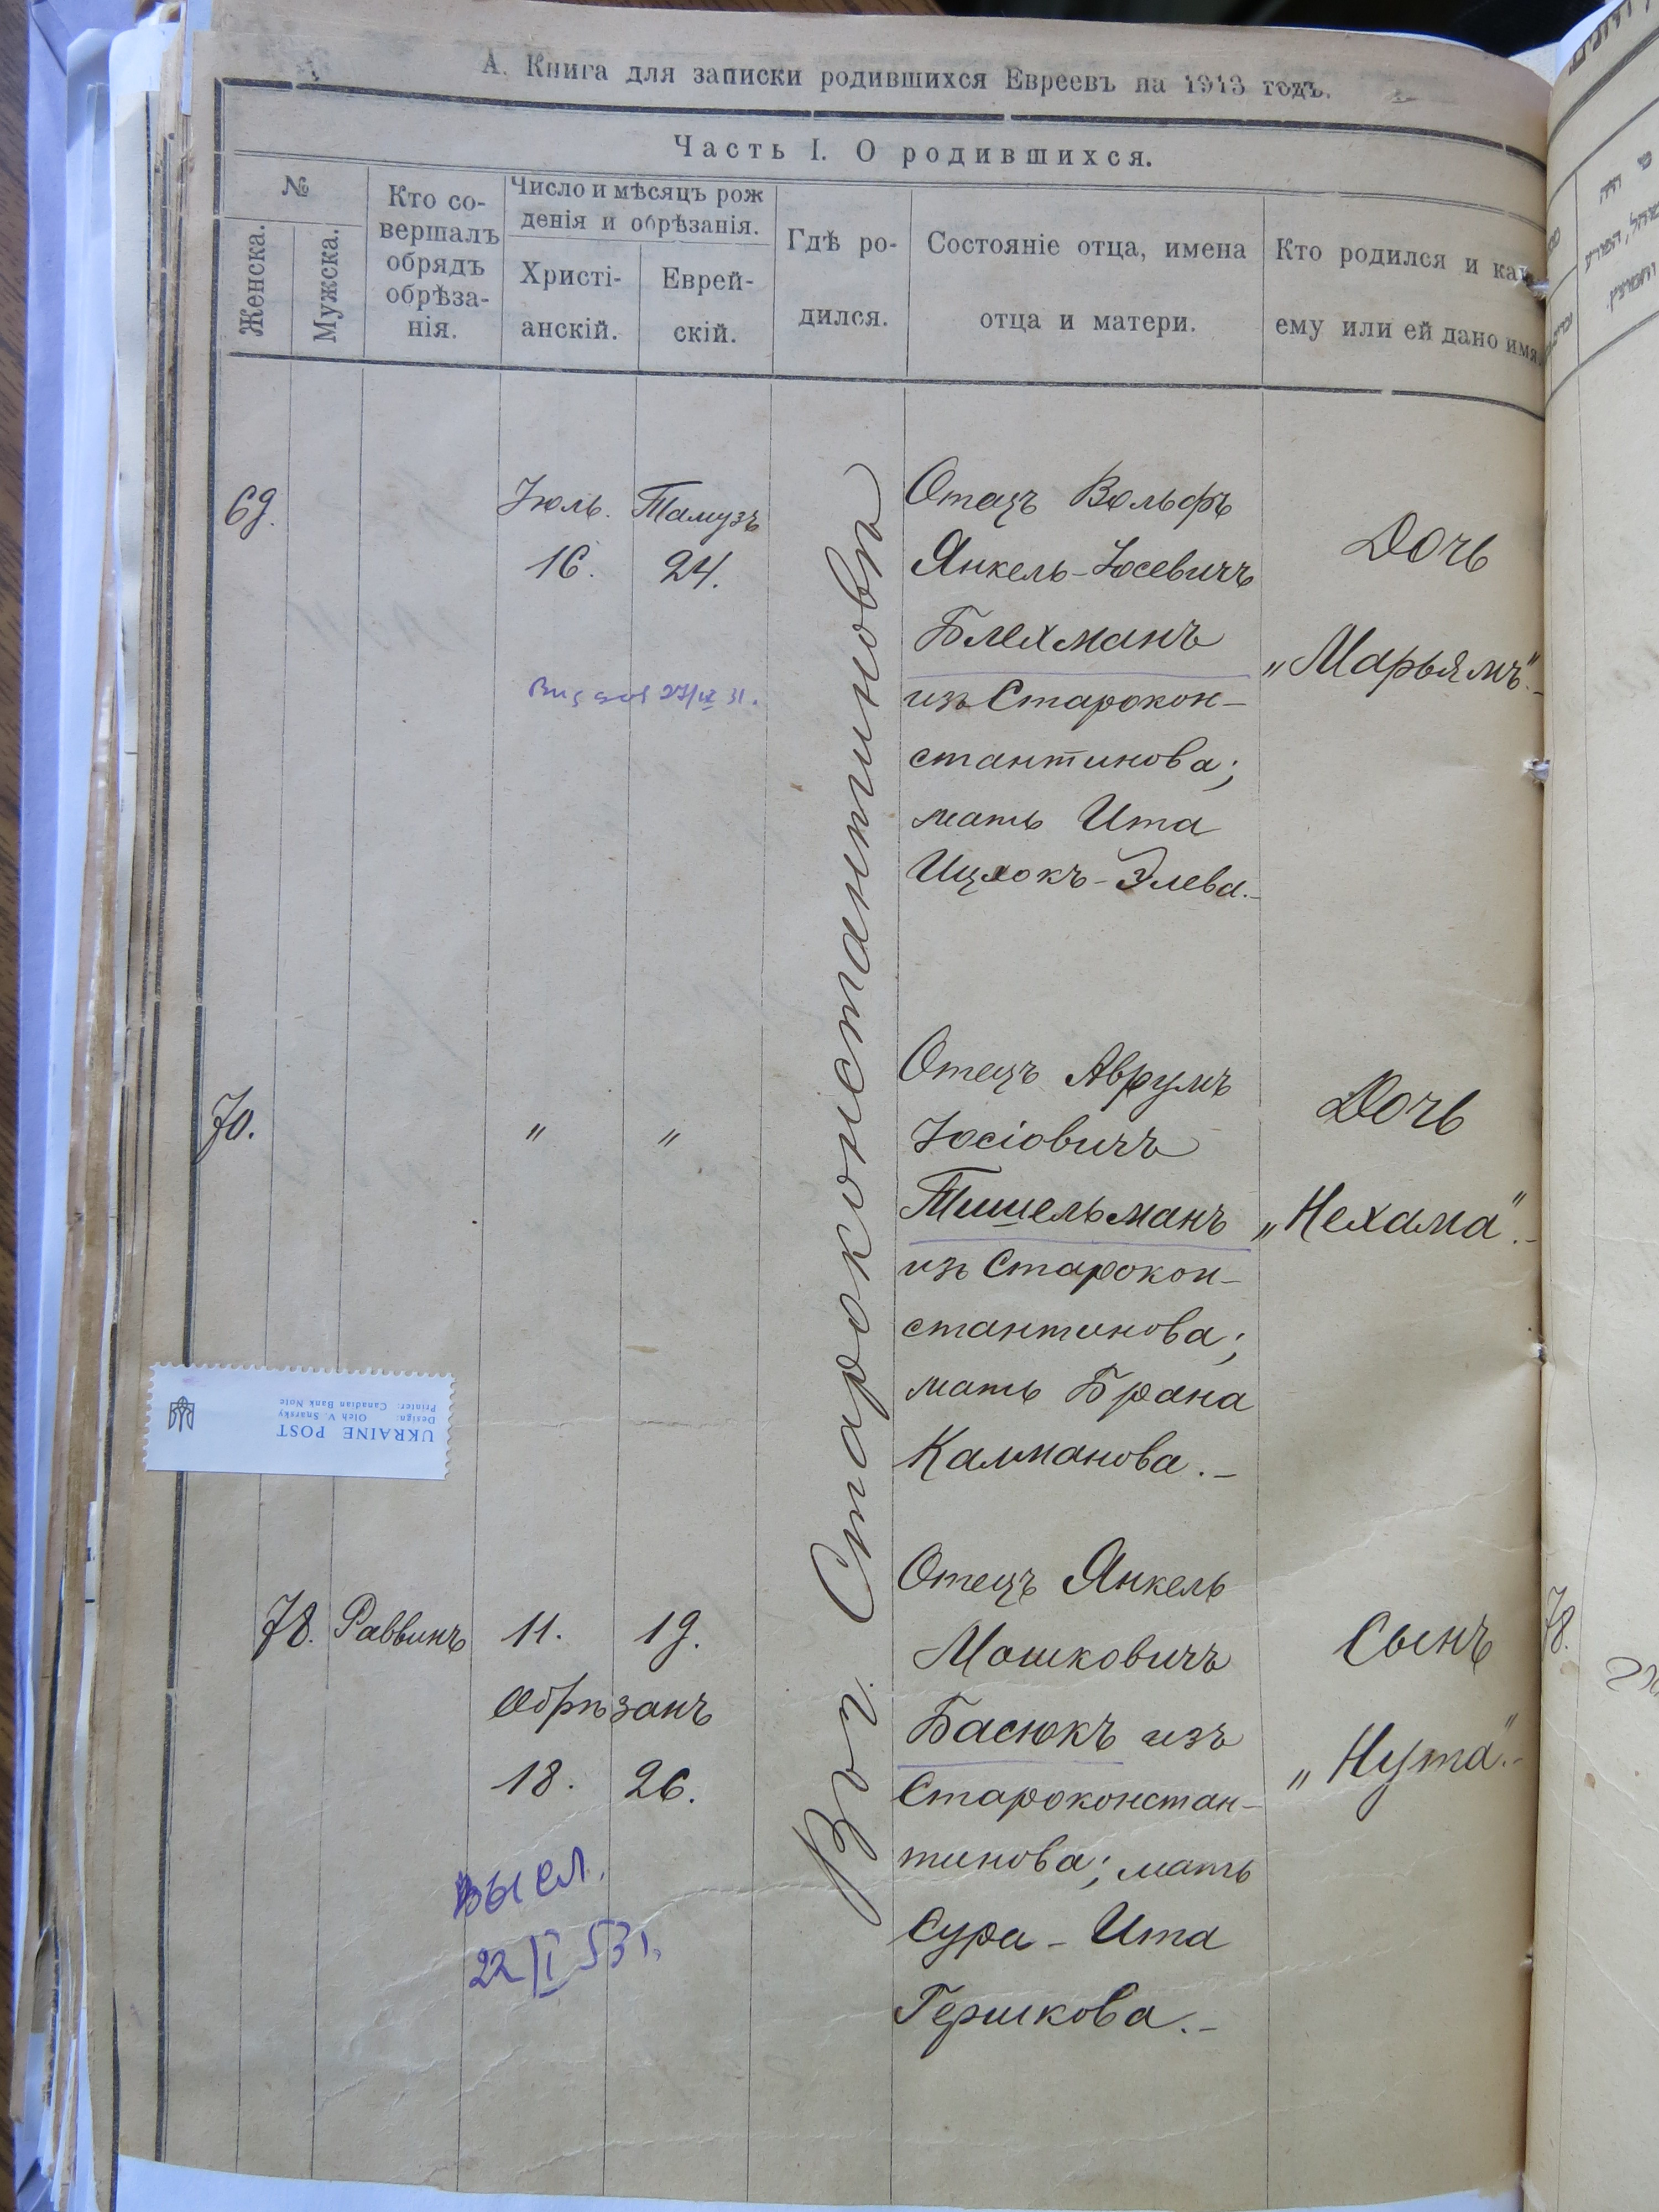 А. Книга для записки родившихся Евреевъ на 1913 годъ.
Часть I. О родившихся.
№
Женска.
Мужска.
Кто со-
вершалъ
обрядъ
обрѣза-
нія.
Число и мѣсяцъ рож
денія и обрѣзанія.
Христі-
анскій.
Еврей-
скій.
Гдѣ ро-
дился.
Состояніе отца, имена
отца и матери.
Кто родился и как
ему или ей дано имя
Въ г. Староконстантиновѣ
69.
Іюль. Тамузъ
16. 24.
27/IX 31.
Отецъ Вольфъ
Янкель-Іосевичъ
Блехманъ
изъ Старокон-
стантинова;
мать Ита
Ицхокъ-Элева.-
Дочь
„Марьямъ".-
70.
" "
Отецъ Аврумъ
Іосіовичъ
Тишельманъ
изъ Старокон-
стантинова;
мать Брана
Калманова.-
Дочь
„Нехама".-
UKRAINE POST
Design: Oleh V. Snarsky
Printer: Canadian Bank Note
78. Раввинъ 11. 19.
Обрѣзанъ
18. 26.
высл.
22/I 53 г.
Отецъ Янкель
Мошковичъ
Басюкъ изъ
Староконстан-
тинова; мать
Сура - Ита
Гершкова.-
Сынъ
„Нута".-
78.